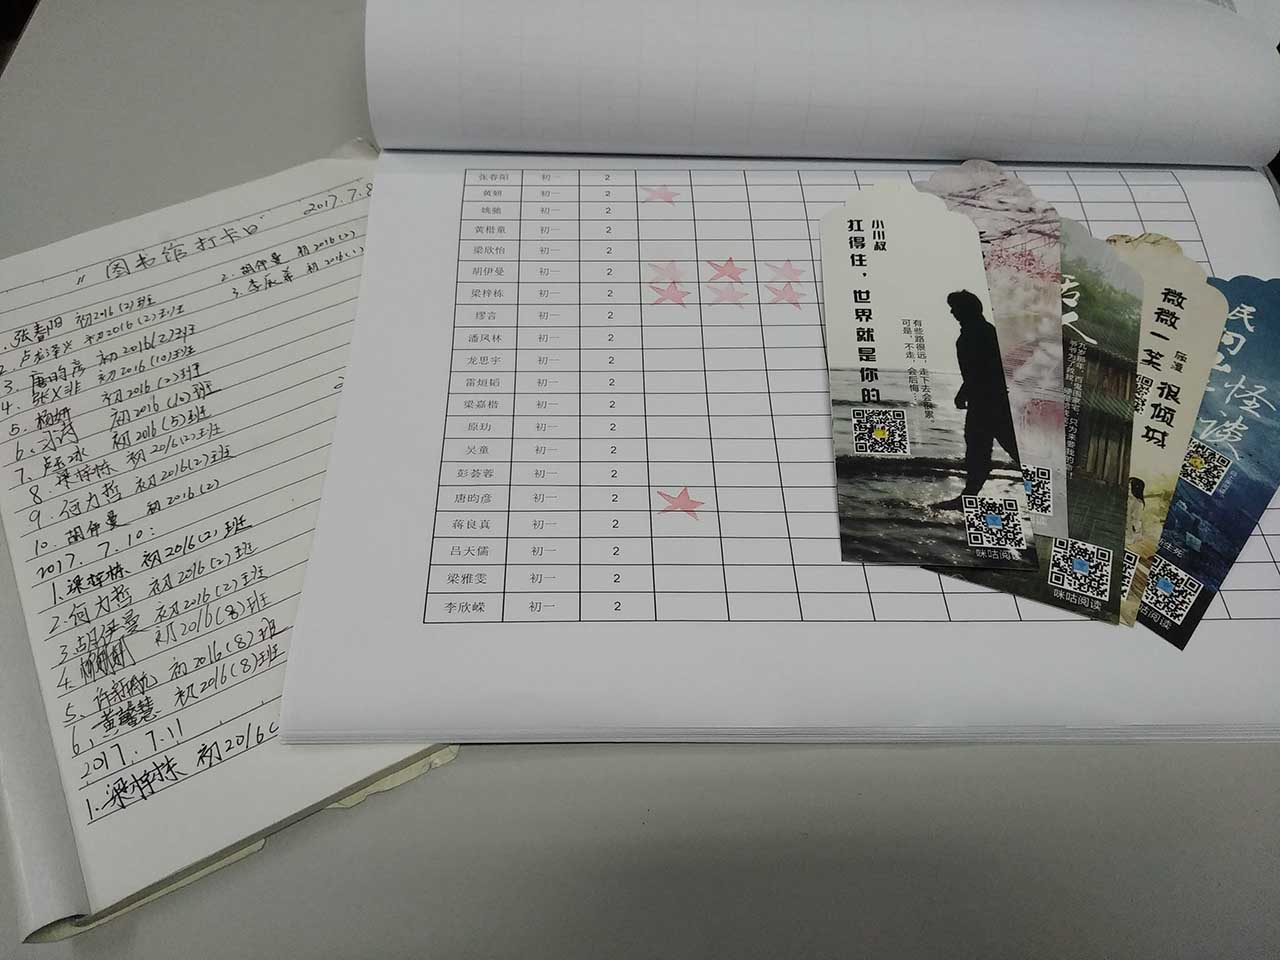 2017.7.8
"图书馆打卡日"
1.张春阳 初2016(2)班
2.卢 初2016(2)班
3.唐昀彦 初2016(2)班
4.张义非 初2016(10)班
5.杨妍 初2016(2)班
6. 初2016(10)班
7.卢 冰 初2016(5)班
8.梁梓栋 初2016(2)班
9.何力哲 初2016(2)班
10.胡伊曼 初2016(2)
2.胡伊曼 初2016(2)
3.李 初2016(1)
2017.7.10:
1.梁梓栋 初2016(2)班
2.何力哲 初2016(2)班
3.胡伊曼 初2016(2)班
4. 初2016(8)班
5.许新 初2016(8)班
6.黄馨慧 初2016(8)班
2017.7.11
1.梁梓栋 初2016(
张春阳 初一 2
黄妍 初一 2
姚驰 初一 2
黄楷童 初一 2
梁欣怡 初一 2
胡伊曼 初一 2
梁梓栋 初一 2
缪言 初一 2
潘风林 初一 2
龙思宇 初一 2
雷烜韬 初一 2
梁嘉楷 初一 2
原玏 初一 2
吴童 初一 2
彭荟蓉 初一 2
唐昀彦 初一 2
蒋良真 初一 2
吕天儒 初一 2
梁雅雯 初一 2
李欣嵘 初一 2
小川叔
扛得住，世界就是你的
有些路很远，走下去会很累。
可是，不走，会后悔…
咪咕阅读
活人
咪咕阅读
微微一笑很倾城
顾漫
民间怪谈
咪咕阅读